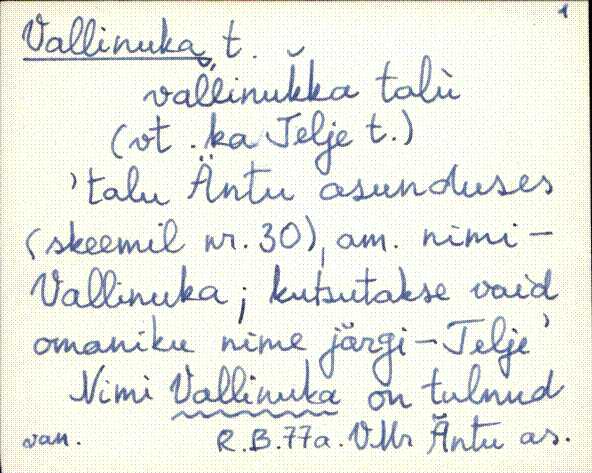 1
Vallinuka t.
vallinukka talu
(vt. ka Telje t.)
'talu Äntu asunduses
(skeemil nr. 30), am. nimi -
Vallinuka; kutsutakse vaid
omaniku nime järgi - Telje'
Nimi Vallinuka on tulnud
van. R.B. 77a. VMr Äntu as.